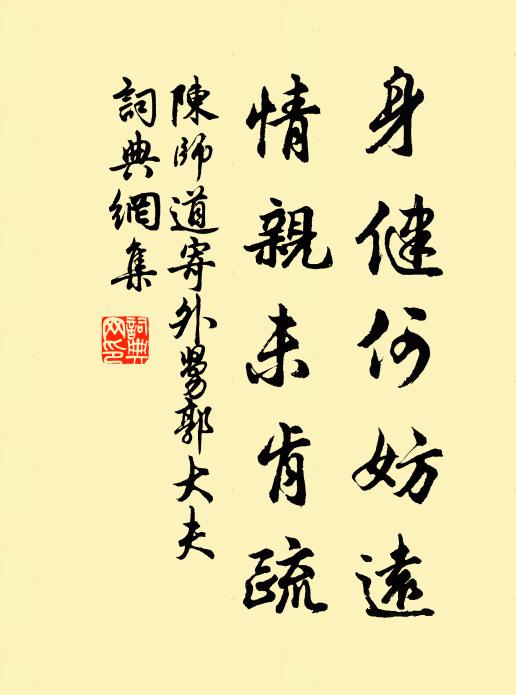 身健何妨遠
情親未肯疏
陳師道寄外舅郭大夫
詞典網集
詞典网印